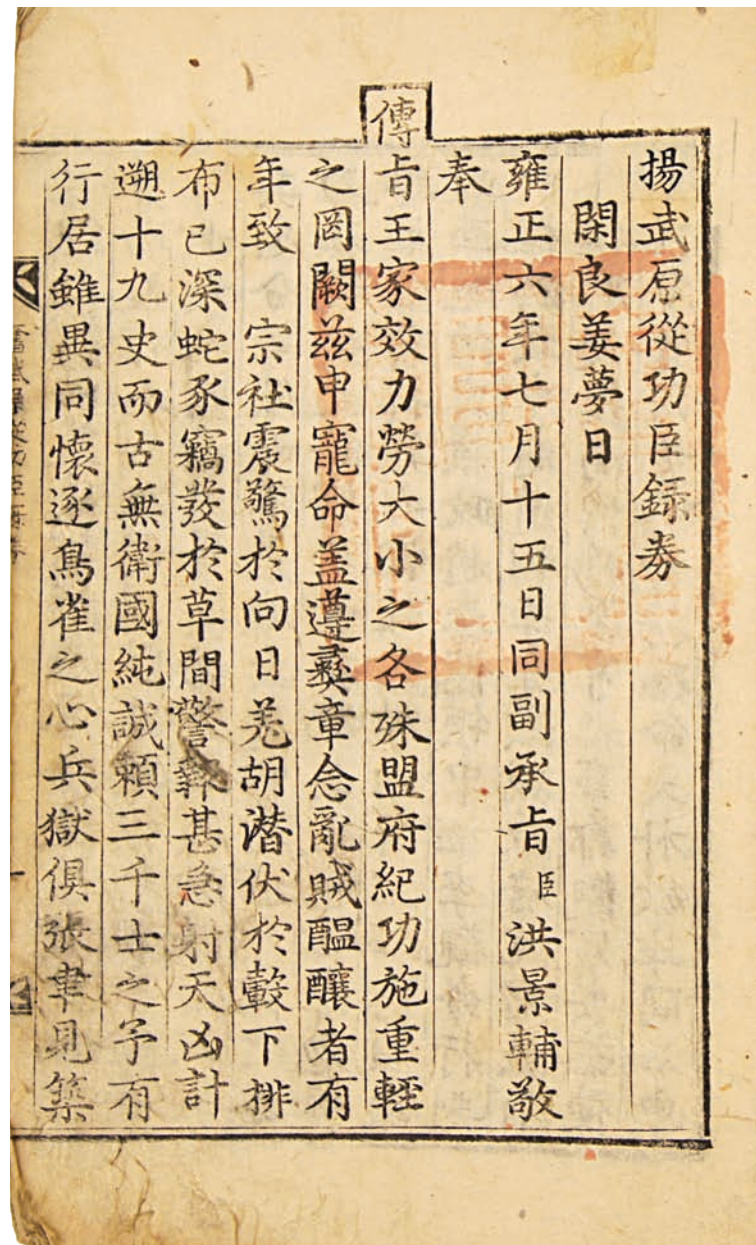 揚武原從功臣錄券
閑良姜夢日
雍正六年七月十五日同副承旨臣洪景輔敬
奉
傳旨王家效力勞大小之各殊盟府紀功施重輕
之罔闕玆申寵命盖遵彛章念亂賊醞釀者有
年致 宗社震驚於向日羌胡潜伏於轂下排
布已深蛇豕竊發於草間警報甚急射天凶計
遡十九史而古無衛國純誠賴三千士之予有
行居雖異同懷逐鳥雀之心兵獄俱張聿見築